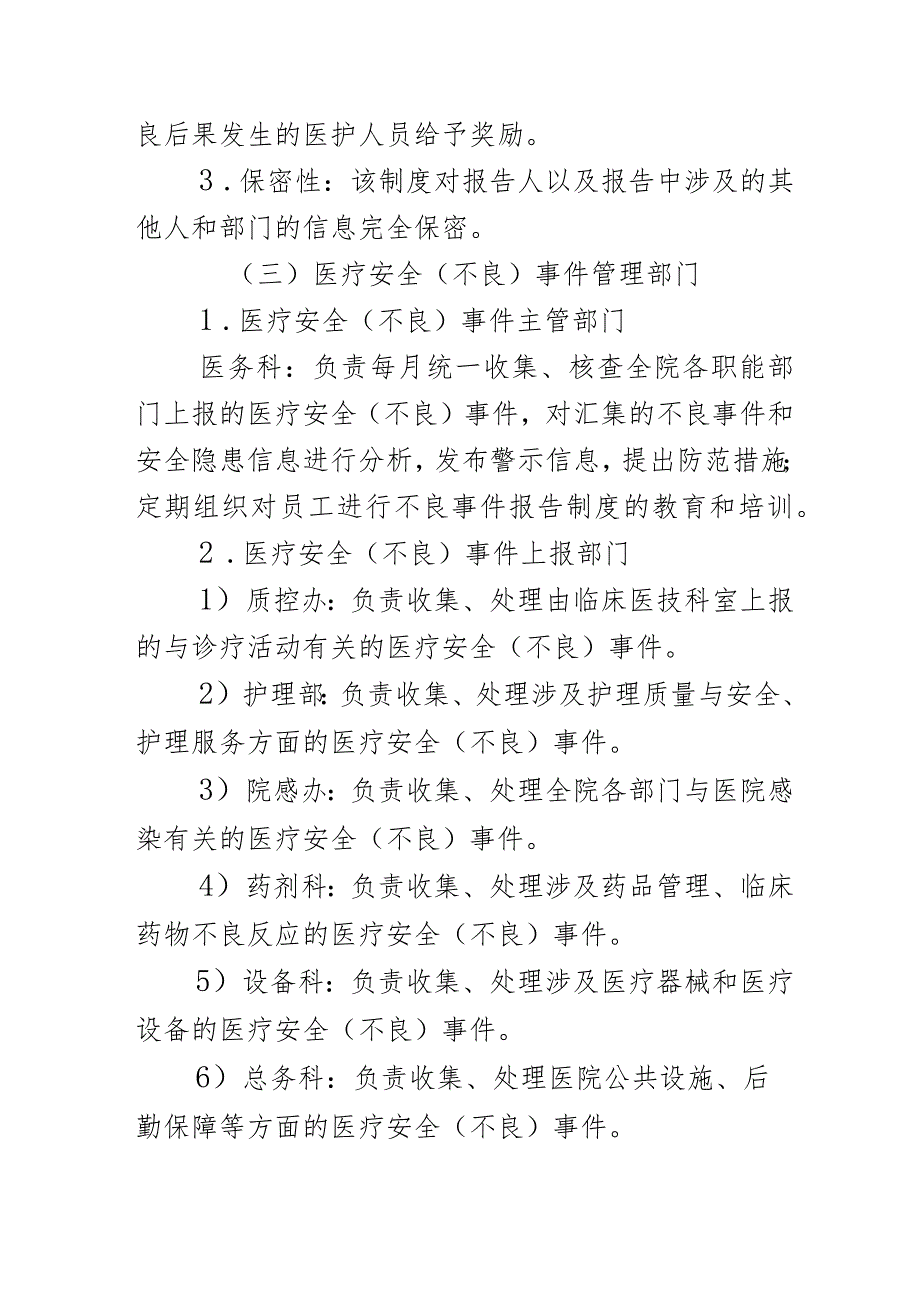 良后果发生的医护人员给予奖励。
3.保密性：该制度对报告人以及报告中涉及的其
他人和部门的信息完全保密。
（三）医疗安全（不良）事件管理部门
1.医疗安全（不良）事件主管部门
医务科：负责每月统一收集、核查全院各职能部
门上报的医疗安全（不良）事件，对汇集的不良事件和
安全隐患信息进行分析，发布警示信息，提出防范措施；
定期组织对员工进行不良事件报告制度的教育和培训。
2.医疗安全（不良）事件上报部门
1）质控办：负责收集、处理由临床医技科室上报
的与诊疗活动有关的医疗安全（不良）事件。
2）护理部：负责收集、处理涉及护理质量与安全、
护理服务方面的医疗安全（不良）事件。
3）院感办：负责收集、处理全院各部门与医院感
染有关的医疗安全（不良）事件。
4）药剂科：负责收集、处理涉及药品管理、临床
药物不良反应的医疗安全（不良）事件。
5）设备科：负责收集、处理涉及医疗器械和医疗
设备的医疗安全（不良）事件。
6）总务科：负责收集、处理医院公共设施、后
勤保障等方面的医疗安全（不良）事件。